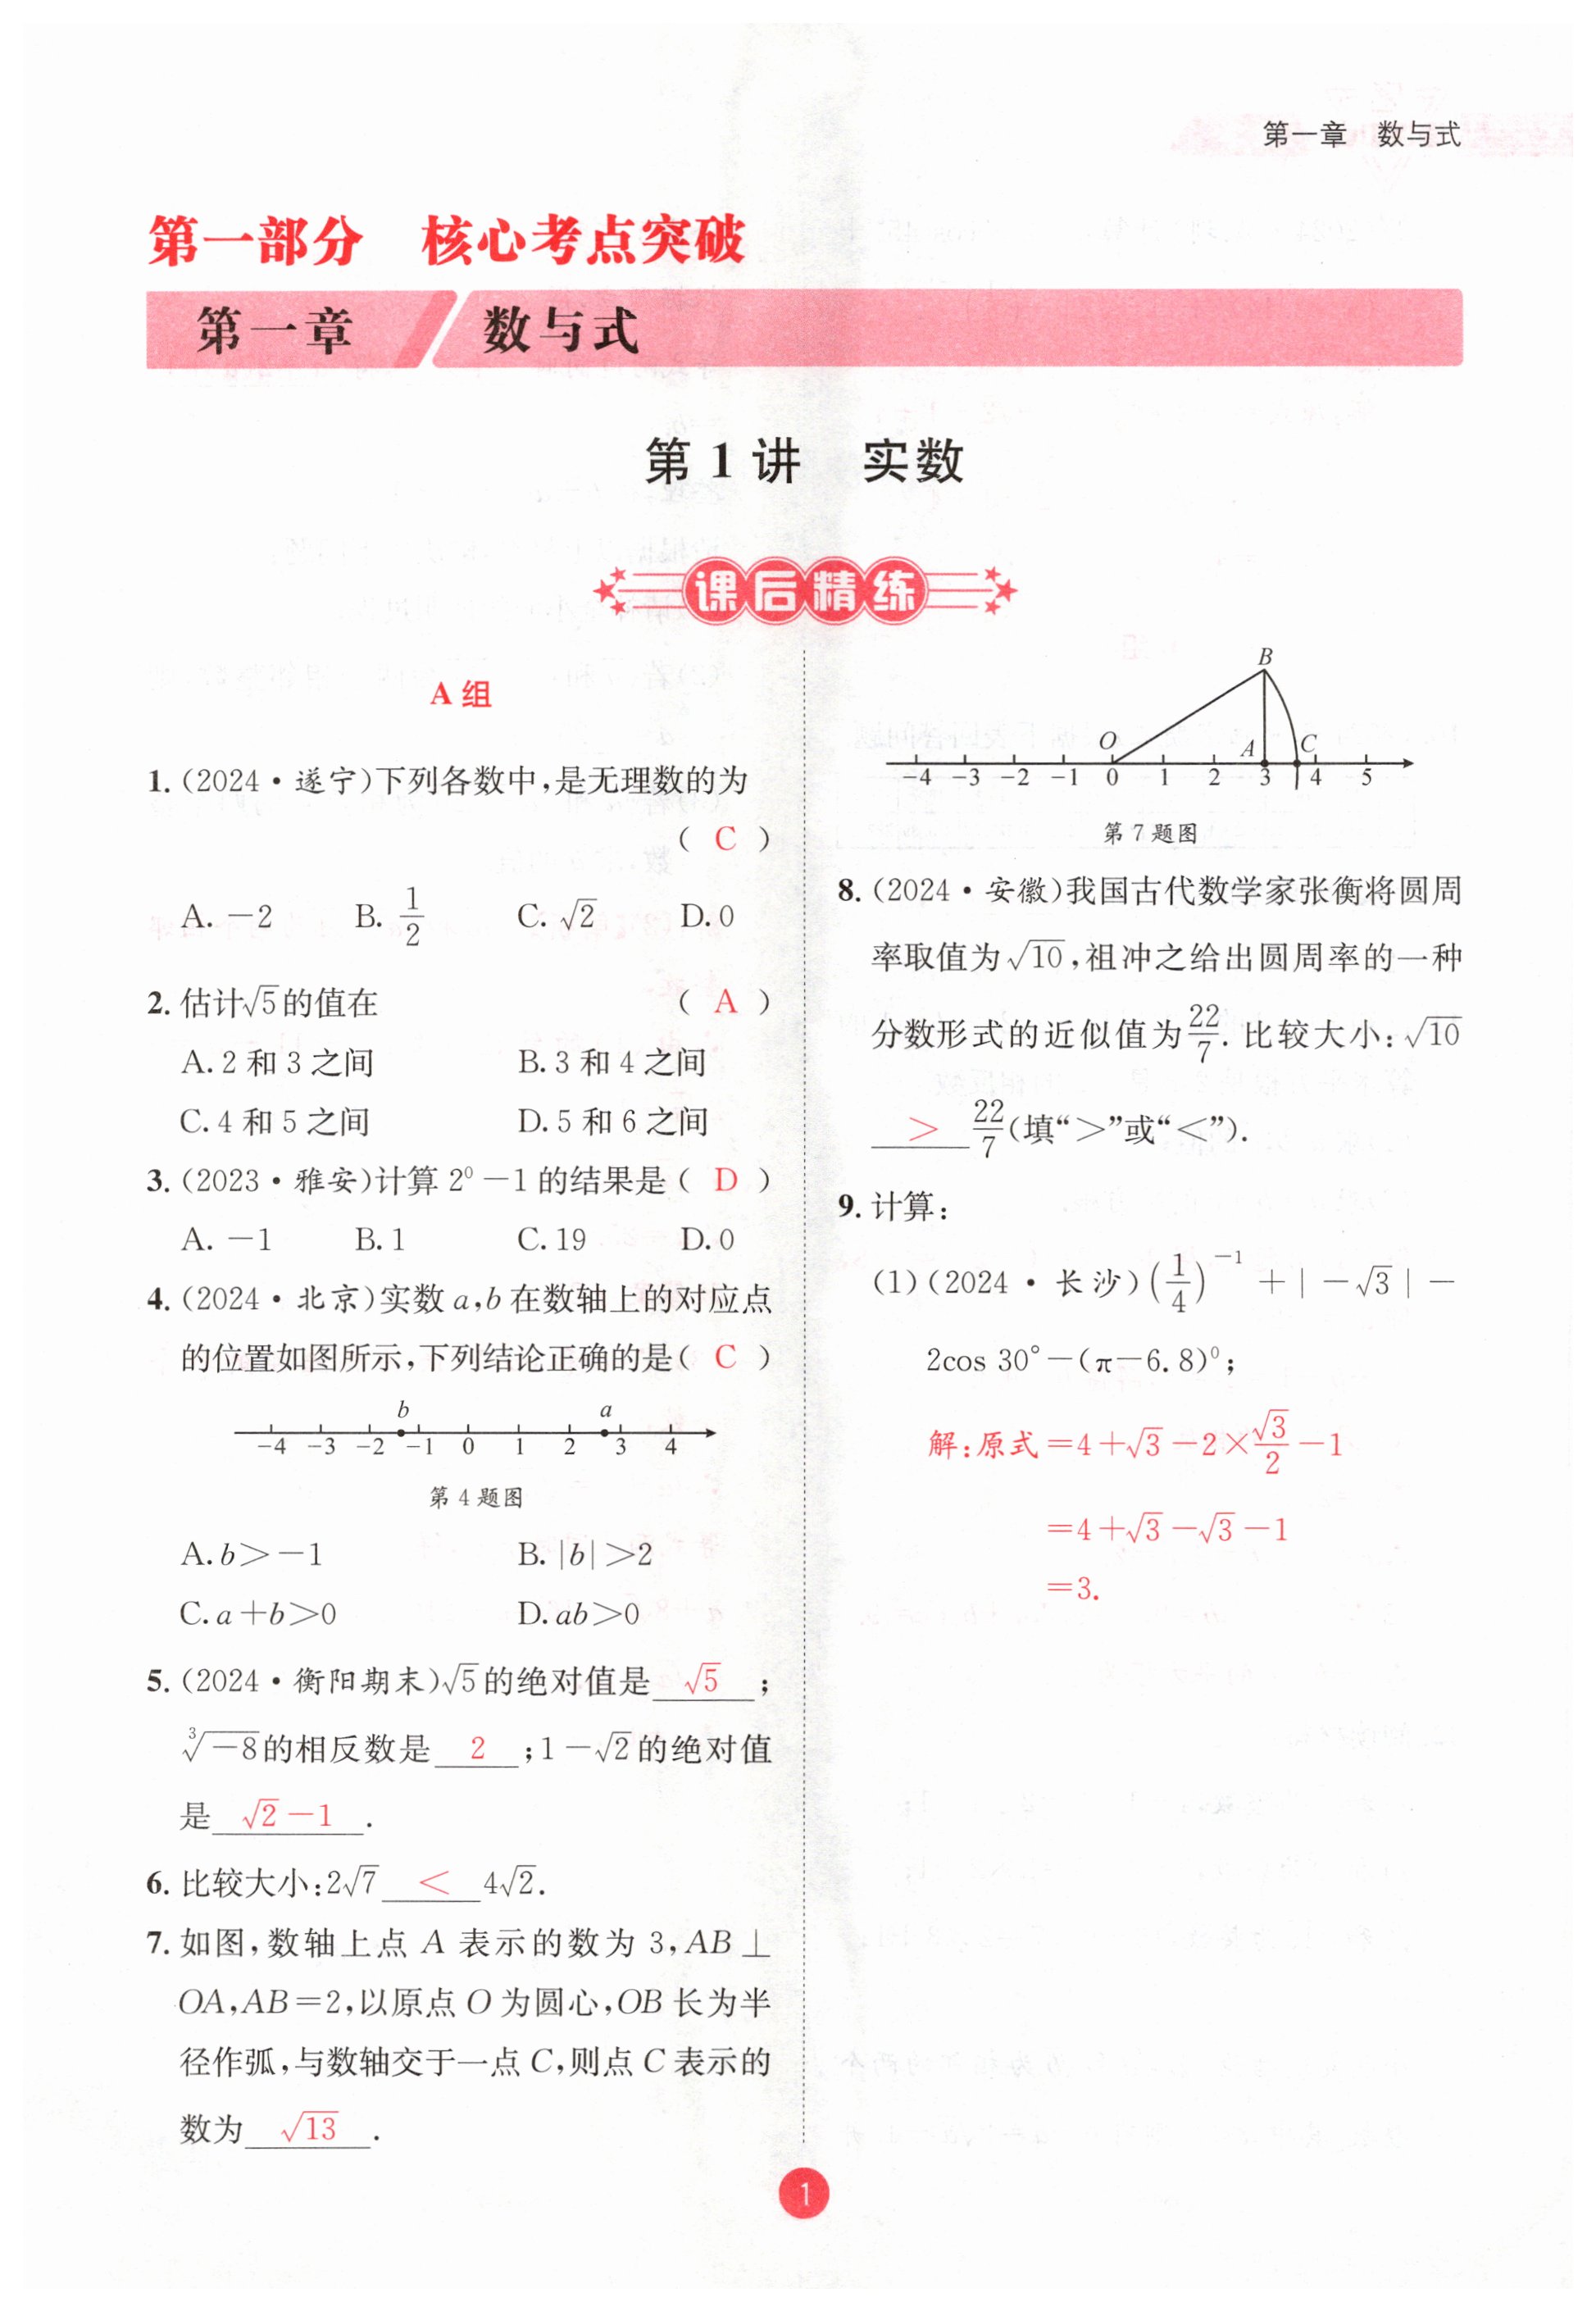 第一章　数与式
第一部分　核心考点突破
第一章　数与式
第 1 讲　实数
课后精练
A 组
1. (2024·遂宁)下列各数中,是无理数的为
( C )
A. −2　B. 1/2　C. √2　D. 0
2. 估计√5的值在 ( A )
A. 2 和 3 之间　B. 3 和 4 之间
C. 4 和 5 之间　D. 5 和 6 之间
3. (2023·雅安)计算 2⁰−1 的结果是( D )
A. −1　B. 1　C. 19　D. 0
4. (2024·北京)实数 a,b 在数轴上的对应点
的位置如图所示,下列结论正确的是( C )
b　a
−4 −3 −2 −1 0 1 2 3 4
第 4 题图
A. b>−1　B. |b|>2
C. a+b>0　D. ab>0
5. (2024·衡阳期末)√5的绝对值是 √5 ;
³√−8的相反数是 2 ;1−√2的绝对值
是 √2−1 .
6. 比较大小:2√7 < 4√2.
7. 如图,数轴上点 A 表示的数为 3,AB⊥
OA,AB=2,以原点 O 为圆心,OB 长为半
径作弧,与数轴交于一点 C,则点 C 表示的
数为 √13 .
B
O　A　C
−4 −3 −2 −1 0 1 2 3 4 5
第 7 题图
8. (2024·安徽)我国古代数学家张衡将圆周
率取值为√10,祖冲之给出圆周率的一种
分数形式的近似值为22/7. 比较大小:√10
> 22/7(填“>”或“<”).
9. 计算:
(1)(2024·长沙)(1/4)⁻¹+|−√3|−
2cos 30°−(π−6.8)⁰;
解:原式=4+√3−2×√3/2−1
=4+√3−√3−1
=3.
1